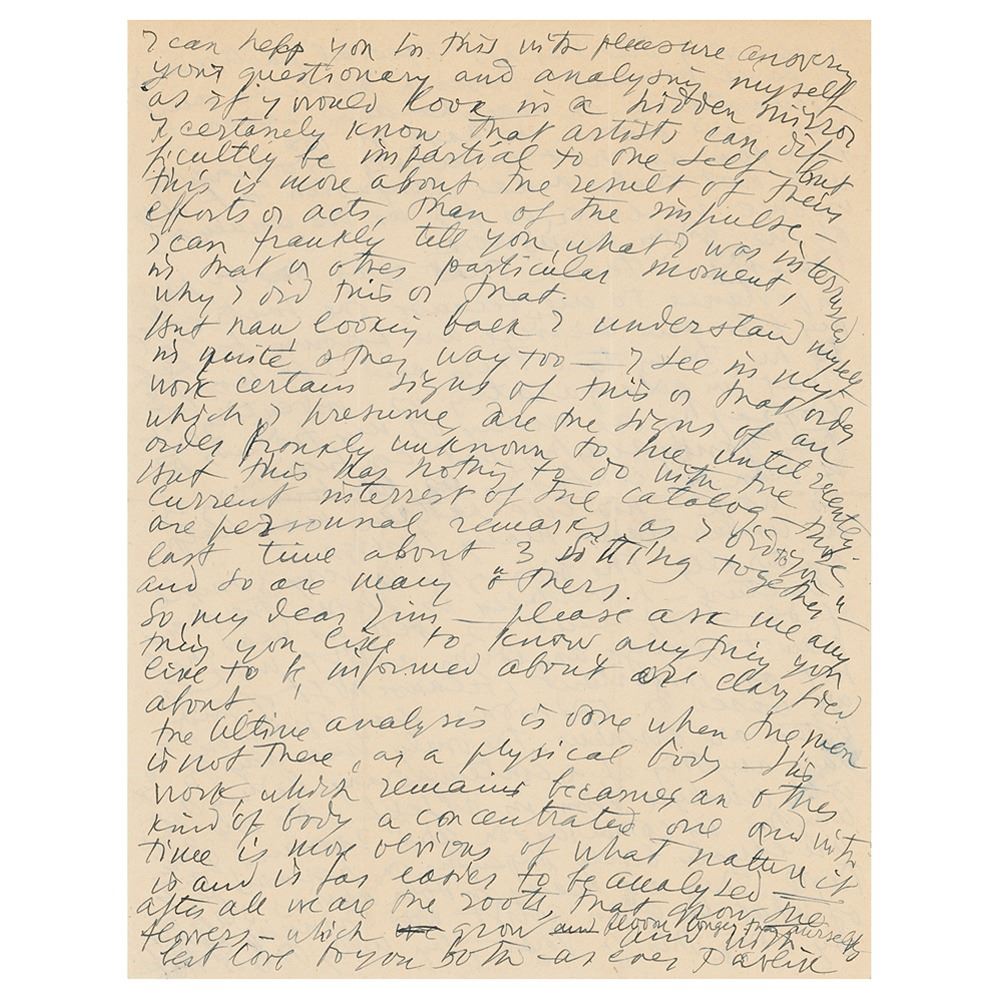 I can help you in this with pleasure answering
your questionary and analysing myself
as if I would look in a hidden mirror
I certanely know that artists can dif
ficultly be impartial to one self – but
this is more about the result of their
efforts or acts, than of the impulse –
I can frankly tell you, what I was interrested
in that or other particular moment,
why I did this or that.
But now looking back I understand myself
in quite other way too — I see in my
work certain signs of this or that order
which I presume are the signs of an
order probably unknown to me until recently.
But this has nothing to do with the
current interrest of the catalog – those
are personnal remarks as I did to you
last time about 3 sitting together
and so are many others.
So my dear Jim – please ask me any
thing you like to know anything you
like to be informed about or clarified
about.
the ultime analysis is done when the man
is not there, as a physical body – his
work, which remains becomes an other
kind of body a concentrated one and with
time is more obvious of what nature it
is and is far easier to be analysed —
after all we are the roots, that grow the
flowers – which grow and bloom longer than ourselves
and with
best love to you both – as ever Pavlik